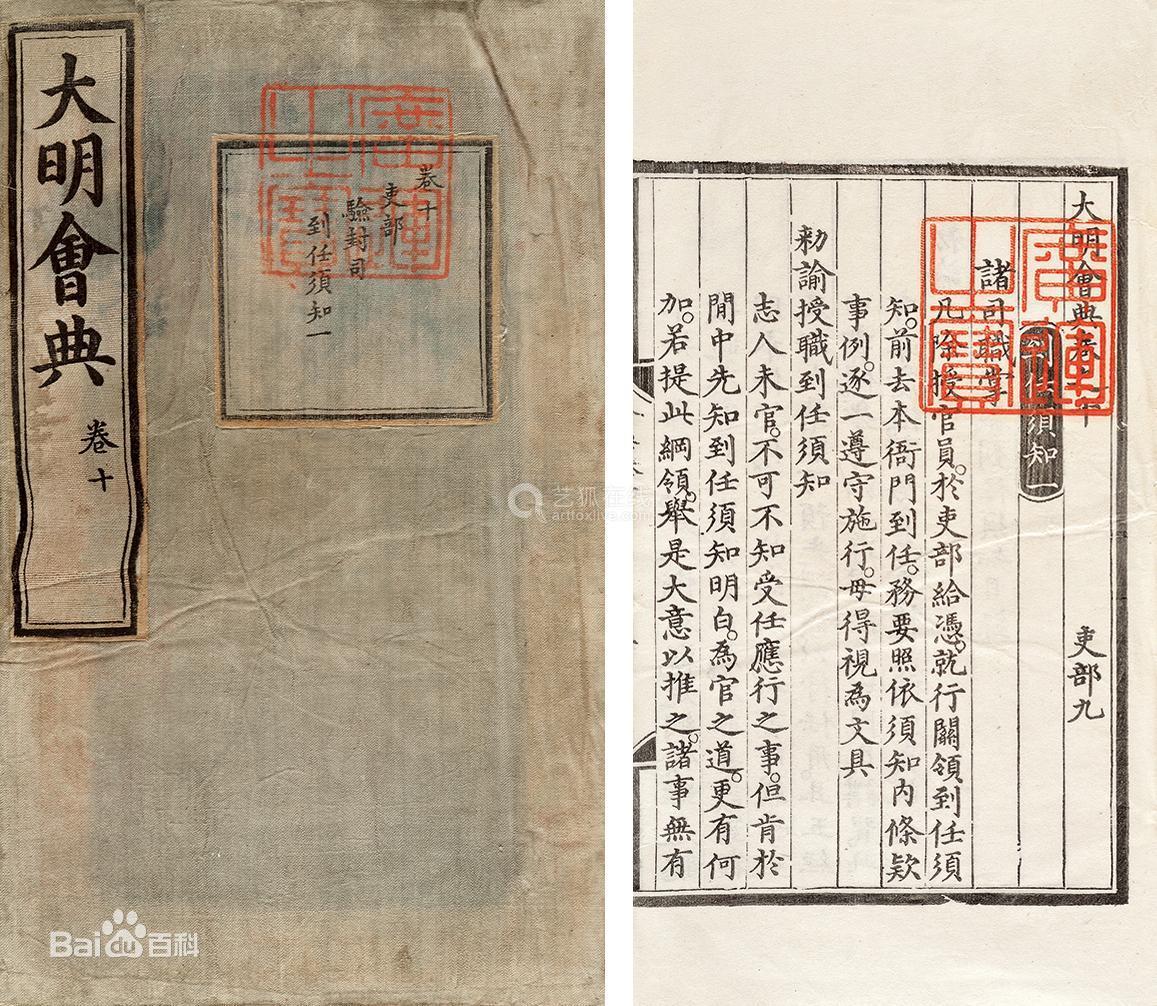 大明會典 卷十
卷十
吏部
驗封司
到任須知一
廣運之寶
大明會典卷之十 吏部九
到任須知一
諸司職掌
凡除授官員。於吏部給憑。就行關領到任須
知。前去本衙門到任。務要照依須知內條欵
事例。逐一遵守施行。毋得視為文具
勑諭授職到任須知
志人未官。不可不知受任應行之事。但肯於
閒中先知到任須知明白。為官之道。更有何
加。若提此綱領。舉是大意以推之。諸事無有
廣運之寶
艺狐在线
artfoxlive.com
Bai du 百科